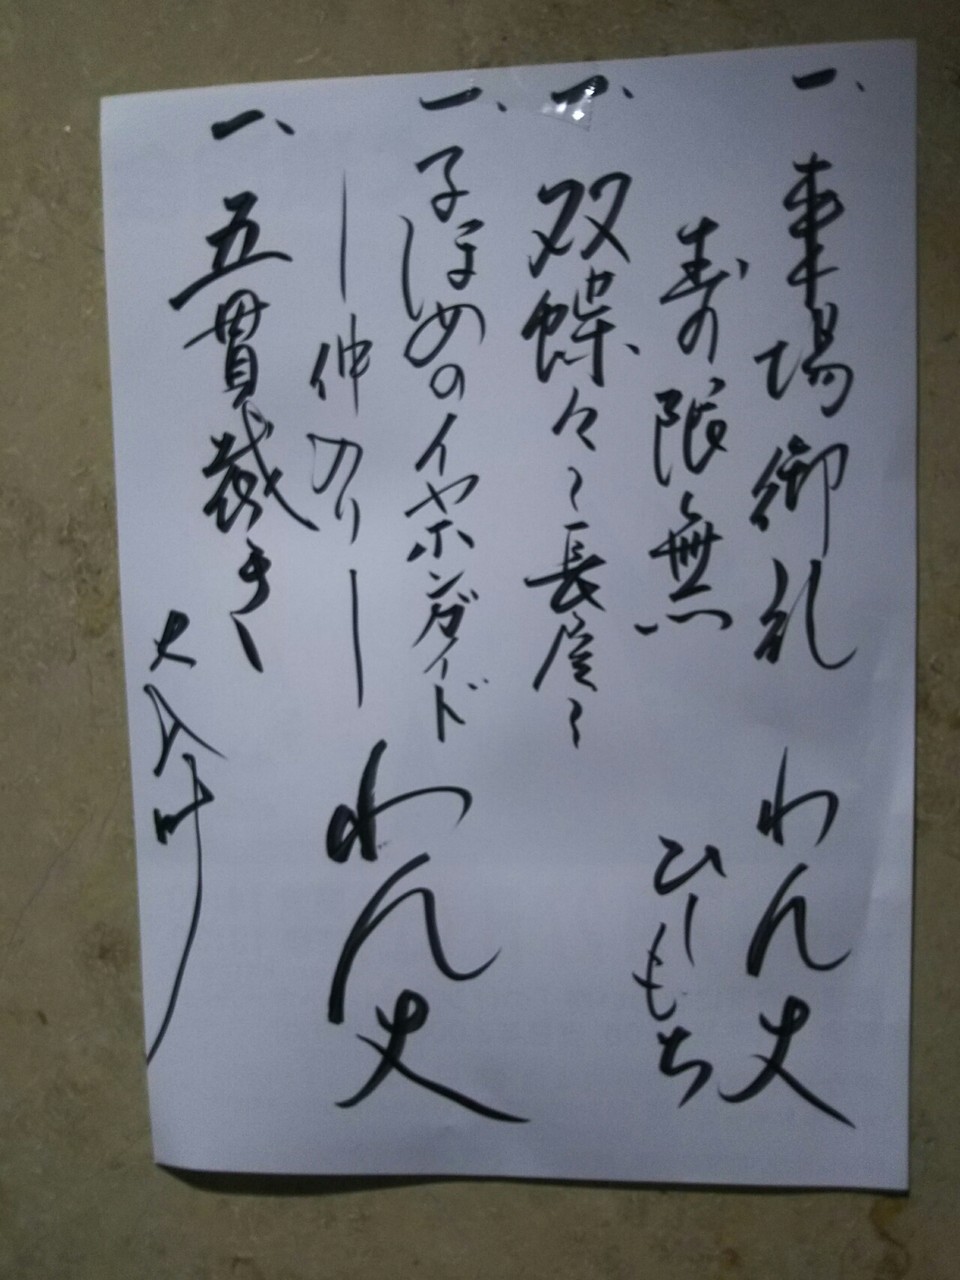 一、来場御礼 わん丈
寿の限無 ひーもち
一、双蝶々〜長屋〜
一、子ほめのイヤホンガイド
―仲のり― わん丈
一、五貫裁き
大入叶